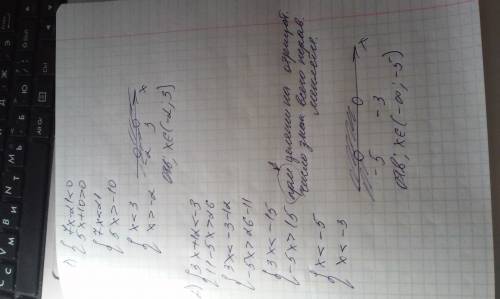 1) { 7x-21<0
5x+10>0
{ 7x<21
5x>-10
{ x<3
x>-2
-2 3 x
отв; x∈(-2; 3)
2) { 3x+12<-3
11-5x>26
{ 3x<-3-12
-5x>26-11
{ 3x<-15
-5x>15
при делении на отрицат.
число знак всего нерав.
меняется.
{ x<-5
x<-3
-5 -3 x
отв; x∈(-∞; -5)